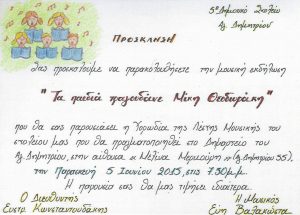 5ο Δημοτικό Σχολείο
Αγ. Δημητρίου
ΠΡΟΣΚΛΗΣΗ
Σας προσκαλούμε να παρακολουθήσετε την μουσική εκδήλωση
"Τα παιδιά τραγουδάνε Μίκη Θεοδωράκη"
που θα σας παρουσιάσει η Χορωδία της Λέσχης Μουσικής του
σχολείου μας που θα πραγματοποιηθεί στο Δημαρχείο του
Αγ. Δημητρίου, στην αίθουσα «Μελίνα Μερκούρη» (Αγ. Δημητρίου 55),
την Παρασκευή 5 Ιουνίου 2015, στις 7.30μ.μ.
Η παρουσία σας θα μας τιμήσει ιδιαίτερα.
Ο Διευθυντής
Ευστρ. Κωνσταντουδάκης
Η Μουσικός
Εύη Βαλακώστα